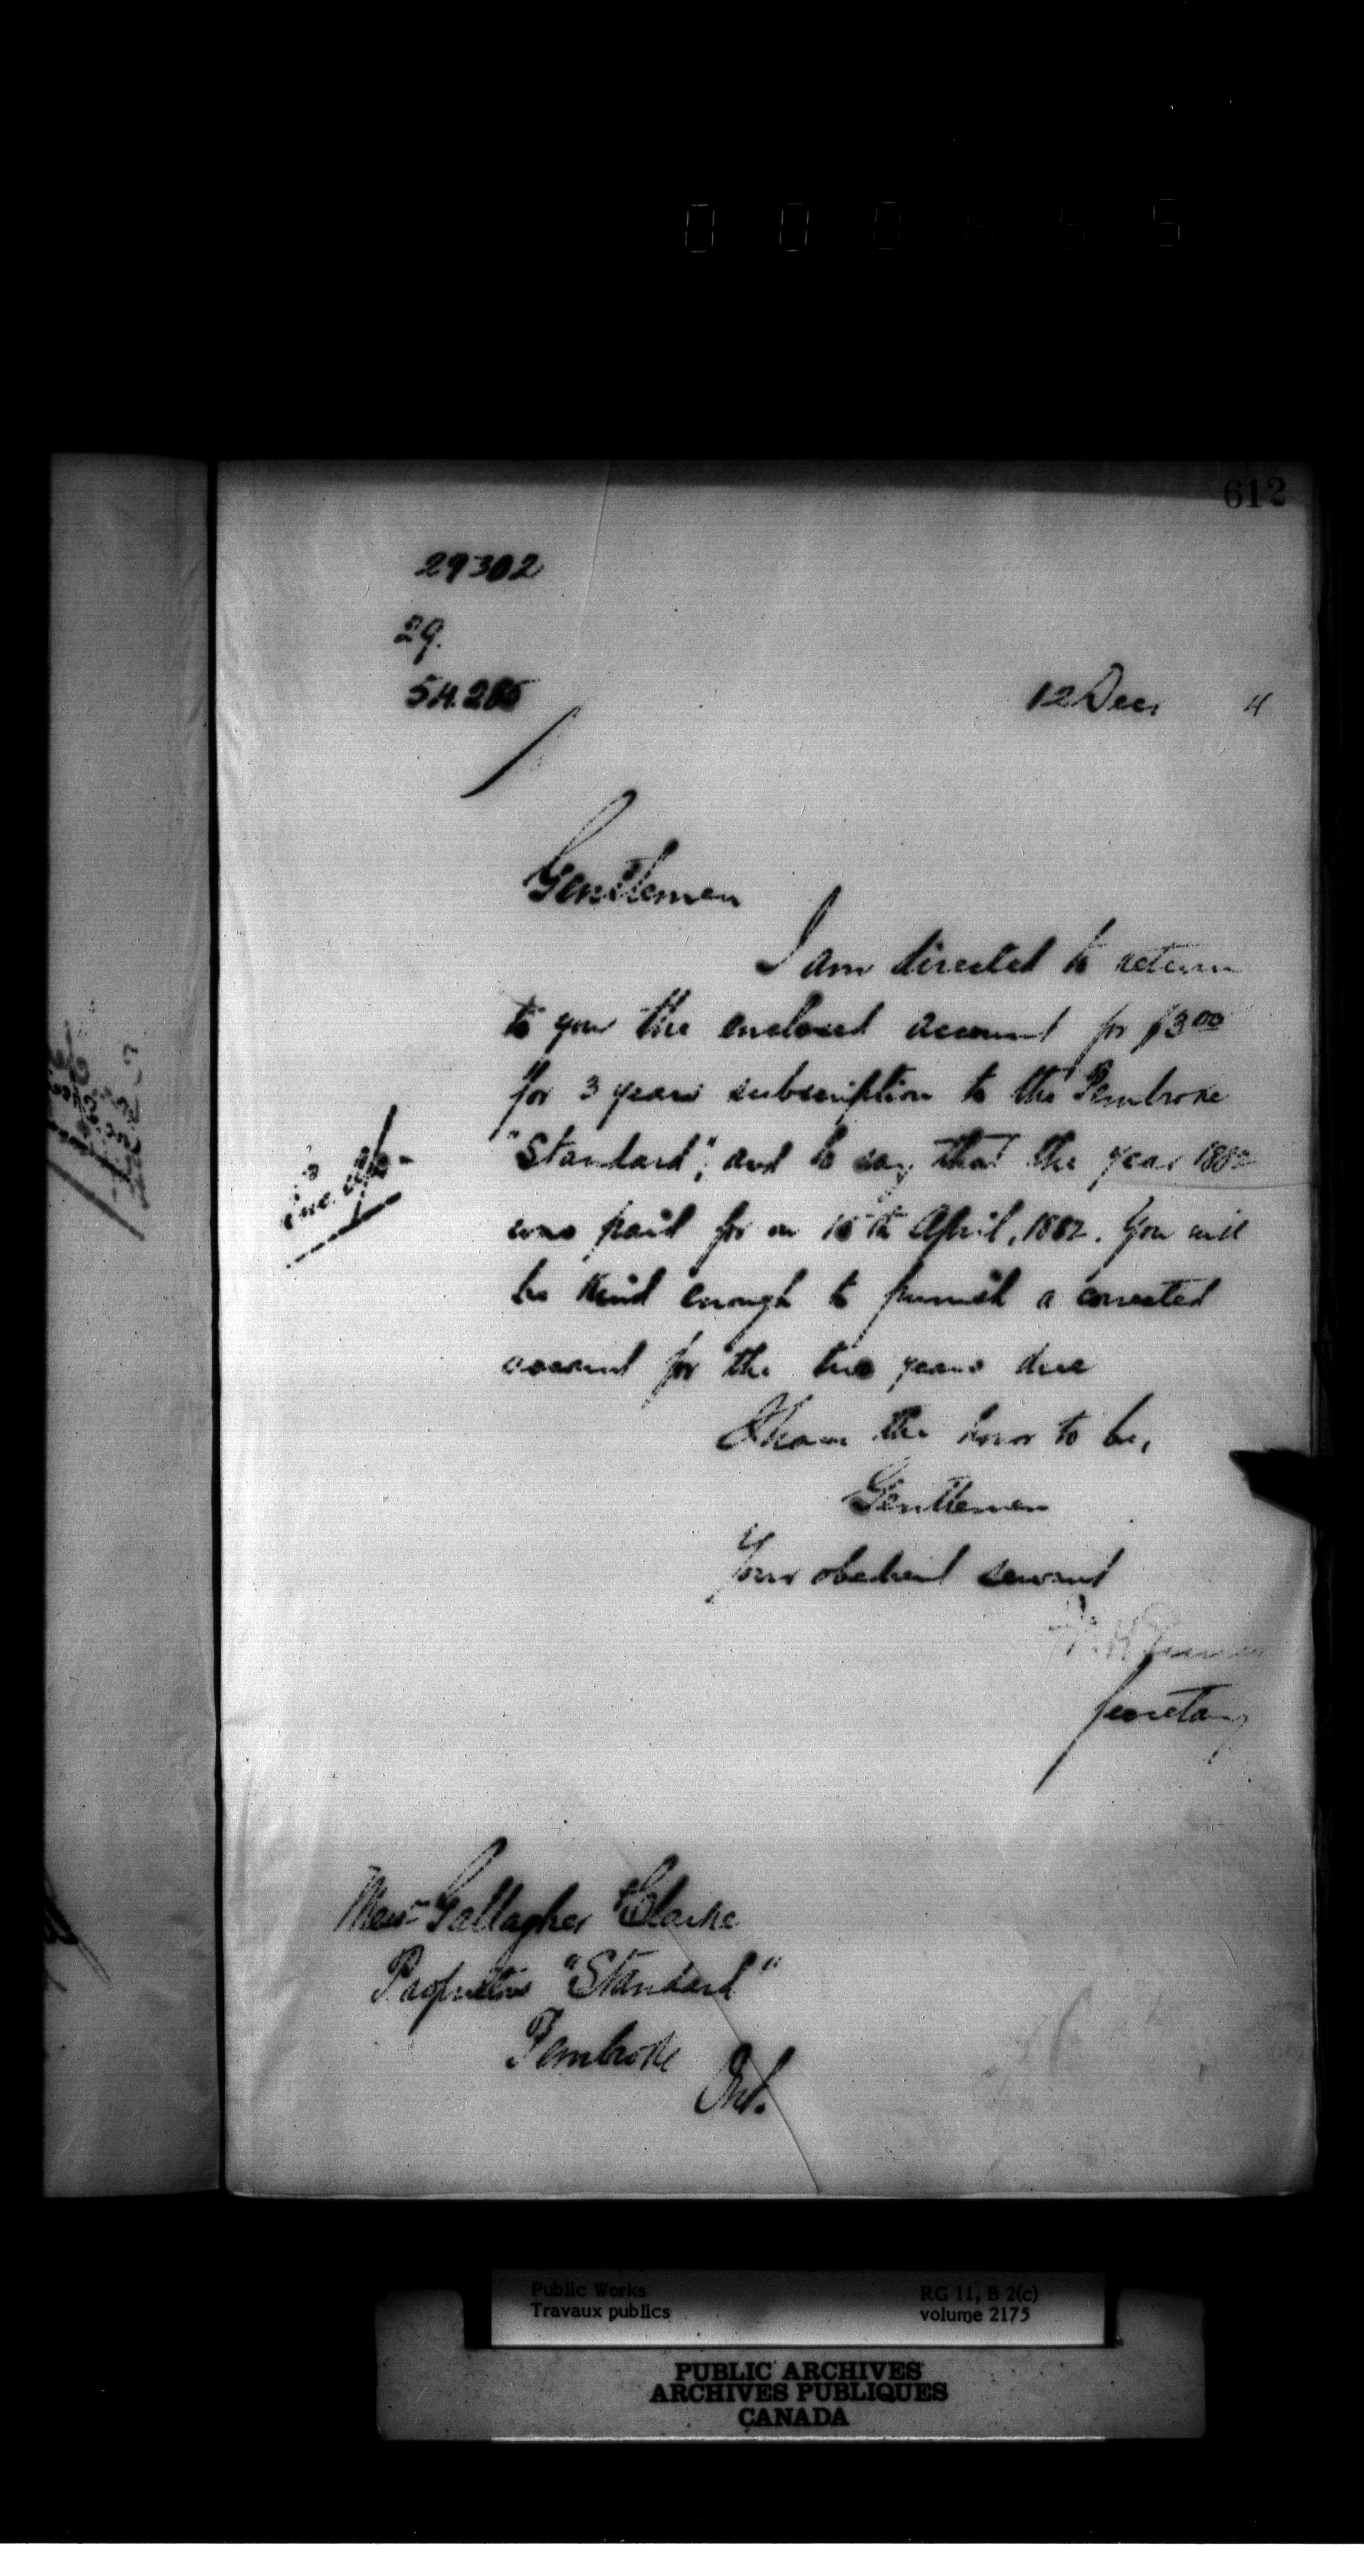 612
29302
29.
54.285
12 Decr 4
Gentlemen
I am directed to return
to you the enclosed account for $3.00
for 3 years subscription to the Pembroke
"Standard"; and to say that the year 1882
was paid for on 15th April, 1882. You will
be kind enough to furnish a corrected
account for the two years due
I have the honor to be,
Gentlemen
Your obedient servant
Secretary
Messrs Gallagher & Clarke
Proprietors "Standard"
Pembroke
Ont.
Public Works
Travaux publics
RG 11, B 2(c)
volume 2175
PUBLIC ARCHIVES
ARCHIVES PUBLIQUES
CANADA